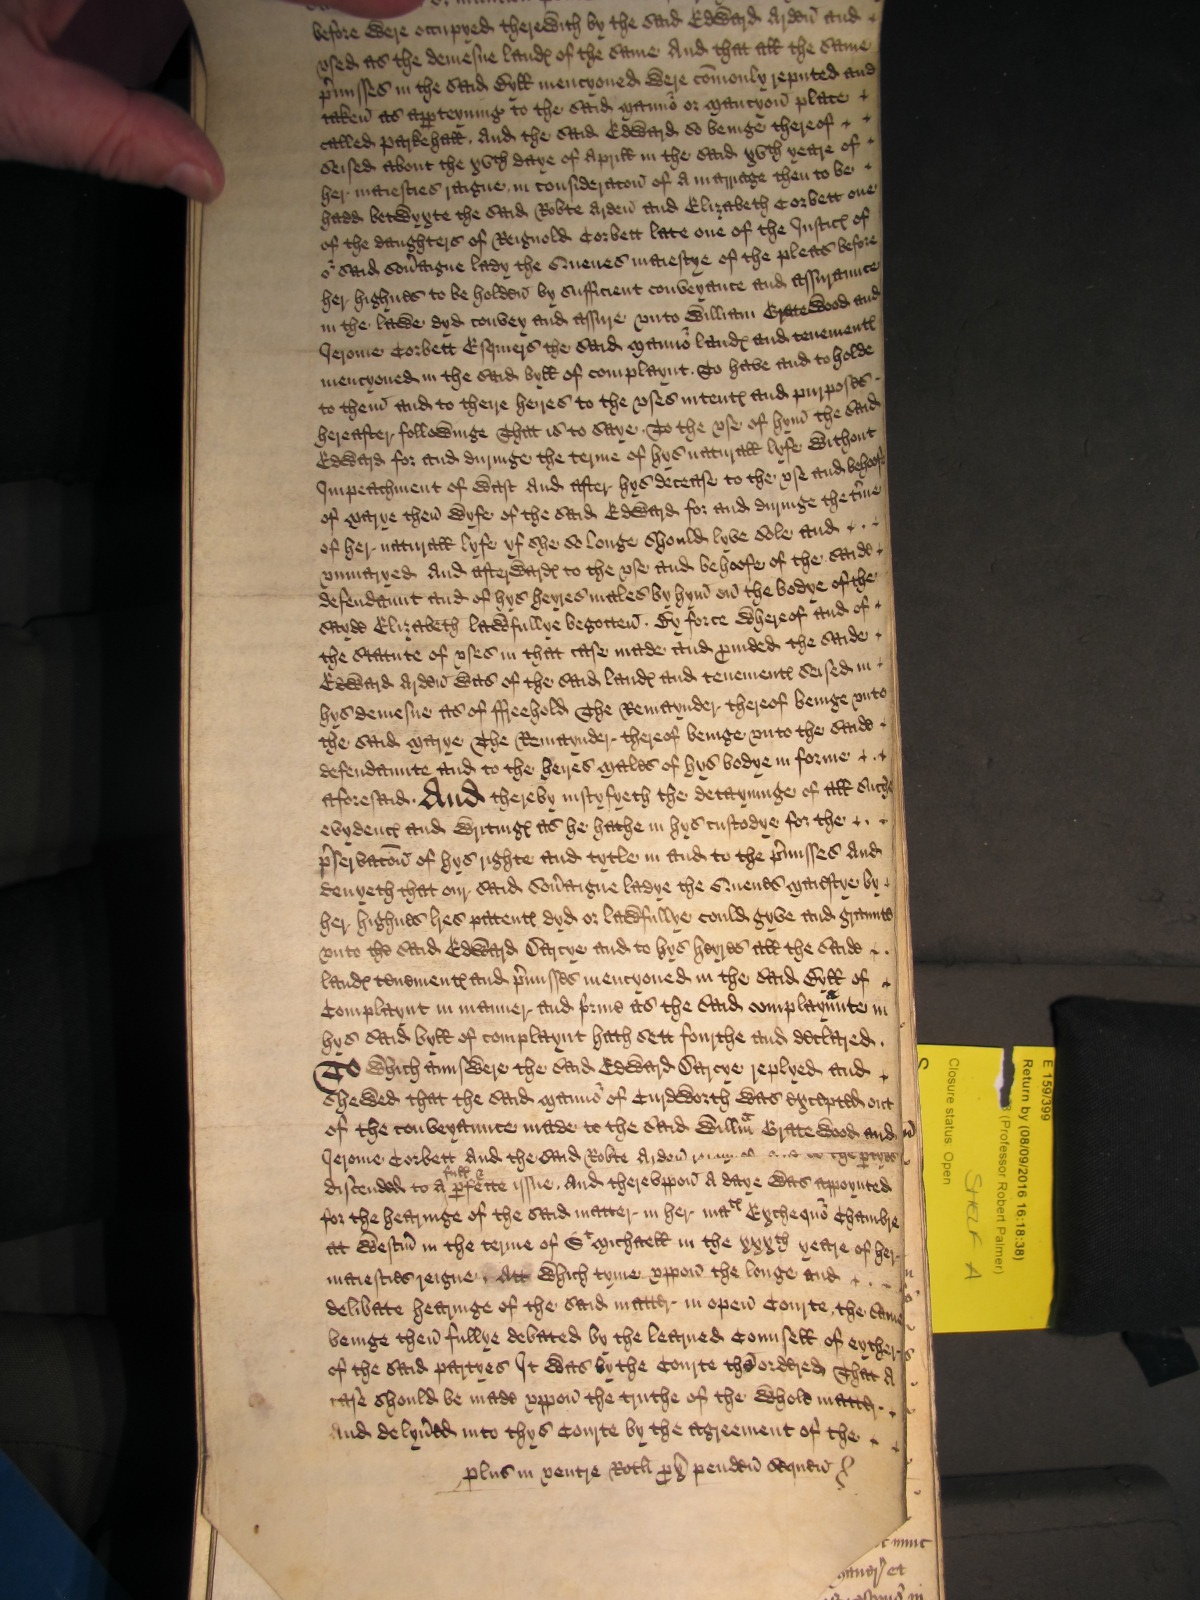 before were occupyed therewith by the said Edward Arden and
vsed as the demesne landꝭ of the same And that all the same
p̄misses in the said Byll mencyoned were comonly reputed and
taken as apperteyning to the said Manno' or Mancyon place
called Parkehall. And the said Edward so beinge thereof
seised about the xvth daye of Aprill in the said xvth yeare of
her maiesties raigne, in consideracon of A marriage then to be
hadd betwyxte the said Robte Arden and Elizabeth Corbett one
of the daughters of Reignold Corbett late one of the Justicꝭ of
o' said sou'aigne lady the Quenes maiestye of the pleas before
her highnes to be holden by sufficient conveyance and assuraunce
in the lawe dyd convey and assure vnto William Gratewood and
Jerome Corbett Esquiers the said Manno' landꝭ and tenementꝭ
mencyoned in the said byll of complaynt. To have and to holde
to them and to there heires to the vses intentꝭ and purposes
hereafter followinge That is to saye. To the vse of hym the said
Edward for and duringe the terme of hys naturall lyfe without
Impeachment of wast And after hys decease to the vse and behoofe
of Marye then wyfe of the said Edward for and duringe the t'me
of her naturall lyfe yf she so longe should lyve sole and
vnmaryed And afterwardꝭ to the vse and behoofe of the saide
defendaunt and of hys heyres males by hym on the bodye of the
sayde Elizabeth lawfullye begotten. By force whereof and of
the statute of vses in that case made and p'uided the saide
Edward Arden was of the said landꝭ and tenementꝭ seised in
hys demesne as of ffreehold The Remaynder thereof beinge vnto
the said Marye The Remaynder thereof beinge vnto the saide
defendaunte and to the heires Males of hys bodye in forme
aforesaid. And thereby iustyfyeth the detayninge of all suche
evydencꝭ and wrytingꝭ as he hathe in hys custodye for the
p̄servacon of hys righte and tytle in and to the p̄misses And
denyeth that our said sou'aigne ladye the Quenes Maiestye by
her highnes l'res patentꝭ dyd or lawfullye could gyve and graunte
vnto the said Edward Darcye and to hys heyres all the saide
landꝭ tenementꝭ and p̄misses mencyoned in the said Byll of
Complaynt in manner and forme as the said complaynᵃnte in
hys said byll of complaynt hath sett fourthe and declared.
To which aunswere the said Edward Darcye replyed and
shewed that the said Manno' of Curdworth was excepted out
of the conveyaunce made to the said Willm Gratewood and
Jerome Corbett And the said Robte Arden the p'tyes
discended to a full & p'fecte issue. And therevppon A daye was appoynted
for the hearinge of the said matter in her maᵗᵉˢ Exchequo' Chambre
at Westm' in the terme of Sᵗ Michaell in the xxxth yeare of her
maiesties reigne. Att which tyme vppon the longe and
delibate hearinge of the said matter in open Courte, the same
beinge then fullye debated by the learned Counsell of eyther
of the said partyes It was by the Courte then ordered That A
case should be made vppon the truthe of the whole matter
And delyu'ed into thys Courte by the agreement of the
plus in ventre Rotli px' penden sequen
E 159/399
Return by (08/09/2016 16:18:38)
(Professor Robert Palmer)
SHELF A
Closure status: Open